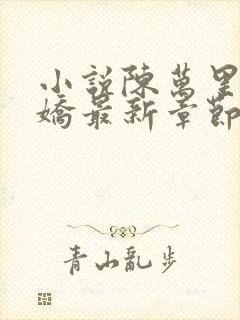 小說陳萬里
嬌最新章節
青山亂步